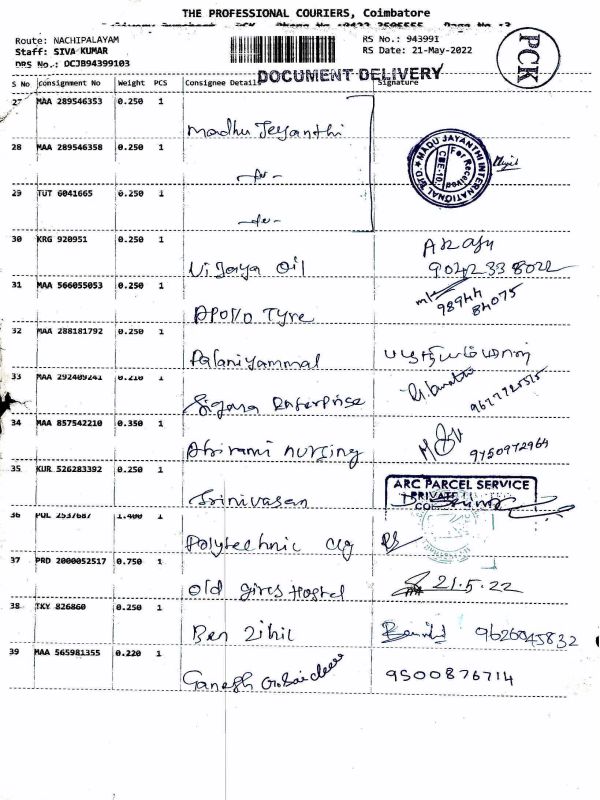 THE PROFESSIONAL COURIERS, Coimbatore
Route: NACHIPALAYAM
RS No.: 943991
Staff: SIVA KUMAR
RS Date: 21-May-2022
DRS No.: OCJB94399103
PCK
DOCUMENT DELIVERY
S No Consignment No Weight PCS Consignee Details Signature
27 MAA 289546353 0.250 1
Madhu Jeyanthi
MADU JAYANTHI INTERNATIONAL
For Received
CBE-10
28 MAA 289546358 0.250 1
29 TUT 6041665 0.250 1
30 KRG 920951 0.250 1
Vijaya Oil 9042338022
31 MAA 566055053 0.250 1
Apollo Tyre 98944 84075
32 MAA 288181792 0.250 1
Palaniyammal பழநியம்மாள்
33 MAA 292409241 0.210 1
Enterprise
34 MAA 857542210 0.350 1
Abirami nursing 9750972969
35 KUR 526283392 0.250 1
Srinivasan
ARC PARCEL SERVICE
PRIVATE
36 POL 2537687 1.400 1
Polytechnic Clg
37 PRD 2000052517 0.750 1
Old girls Hostel 21.5.22
38 TKY 826860 0.250 1
Ben 9626045832
39 MAA 565981355 0.220 1
Ganesh 9500876714